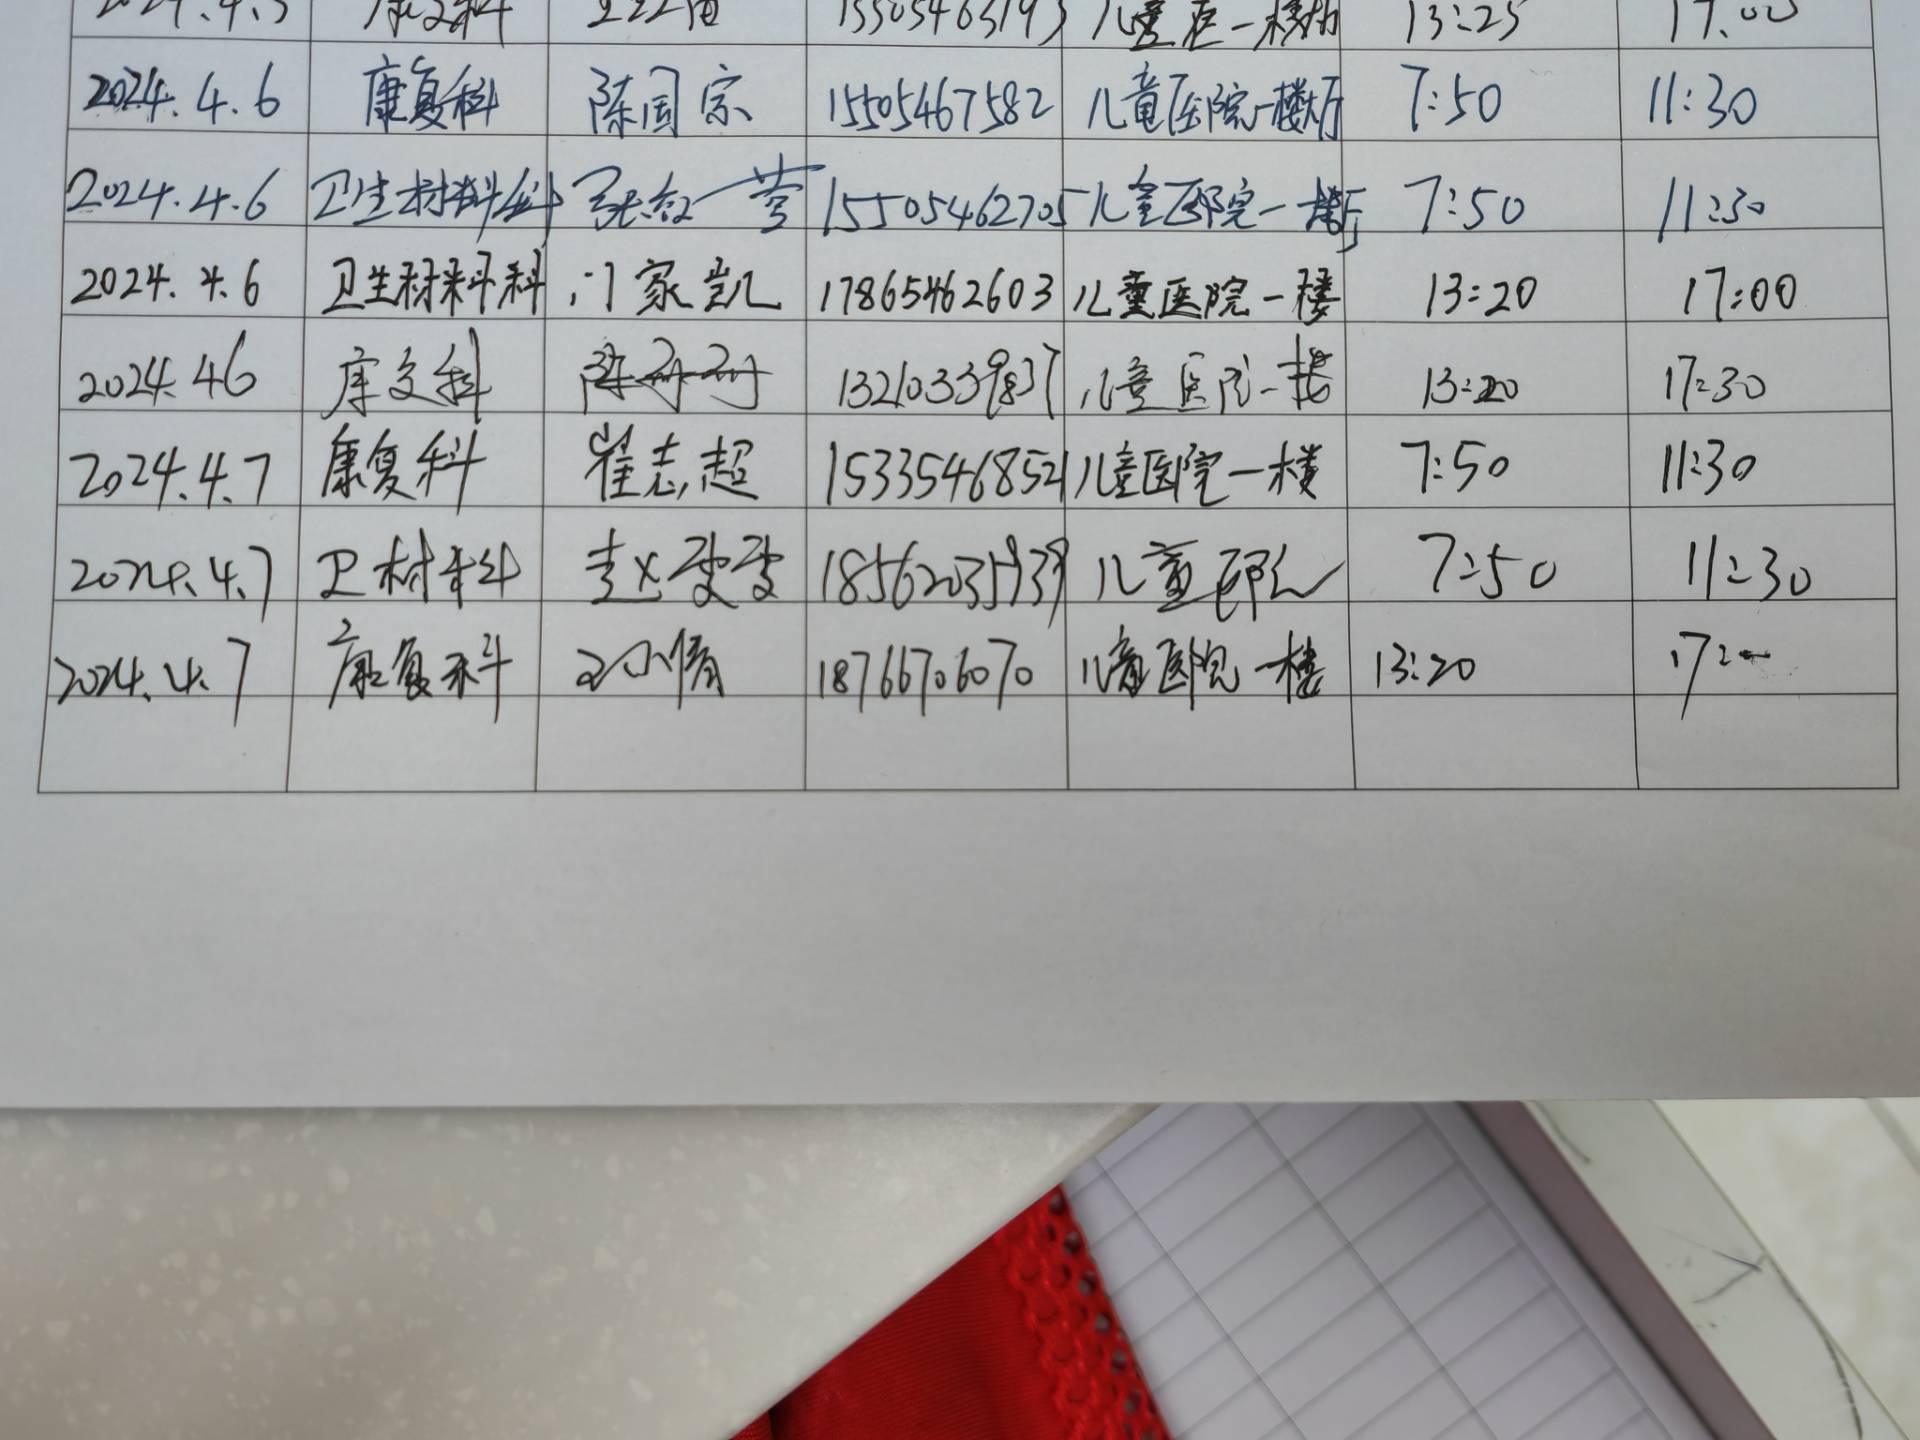 13:25 17:00
2024.4.6 康复科 陈国宗 15505467582 儿童医院一楼大厅 7:50 11:30
2024.4.6 卫生材料科 15505462705 儿童医院一楼厅 7:50 11:30
2024.4.6 卫生材料科 门家凯 17865462603 儿童医院一楼 13:20 17:00
2024.4.6 康复科 陈丹丹 13210339837 儿童医院一楼 13:20 17:30
2024.4.7 康复科 崔志超 15335468521 儿童医院一楼 7:50 11:30
2024.4.7 卫材科 赵雯雯 18562035939 儿童医院 7:50 11:30
2024.4.7 康复科 王小倩 18766706070 儿童医院一楼 13:20